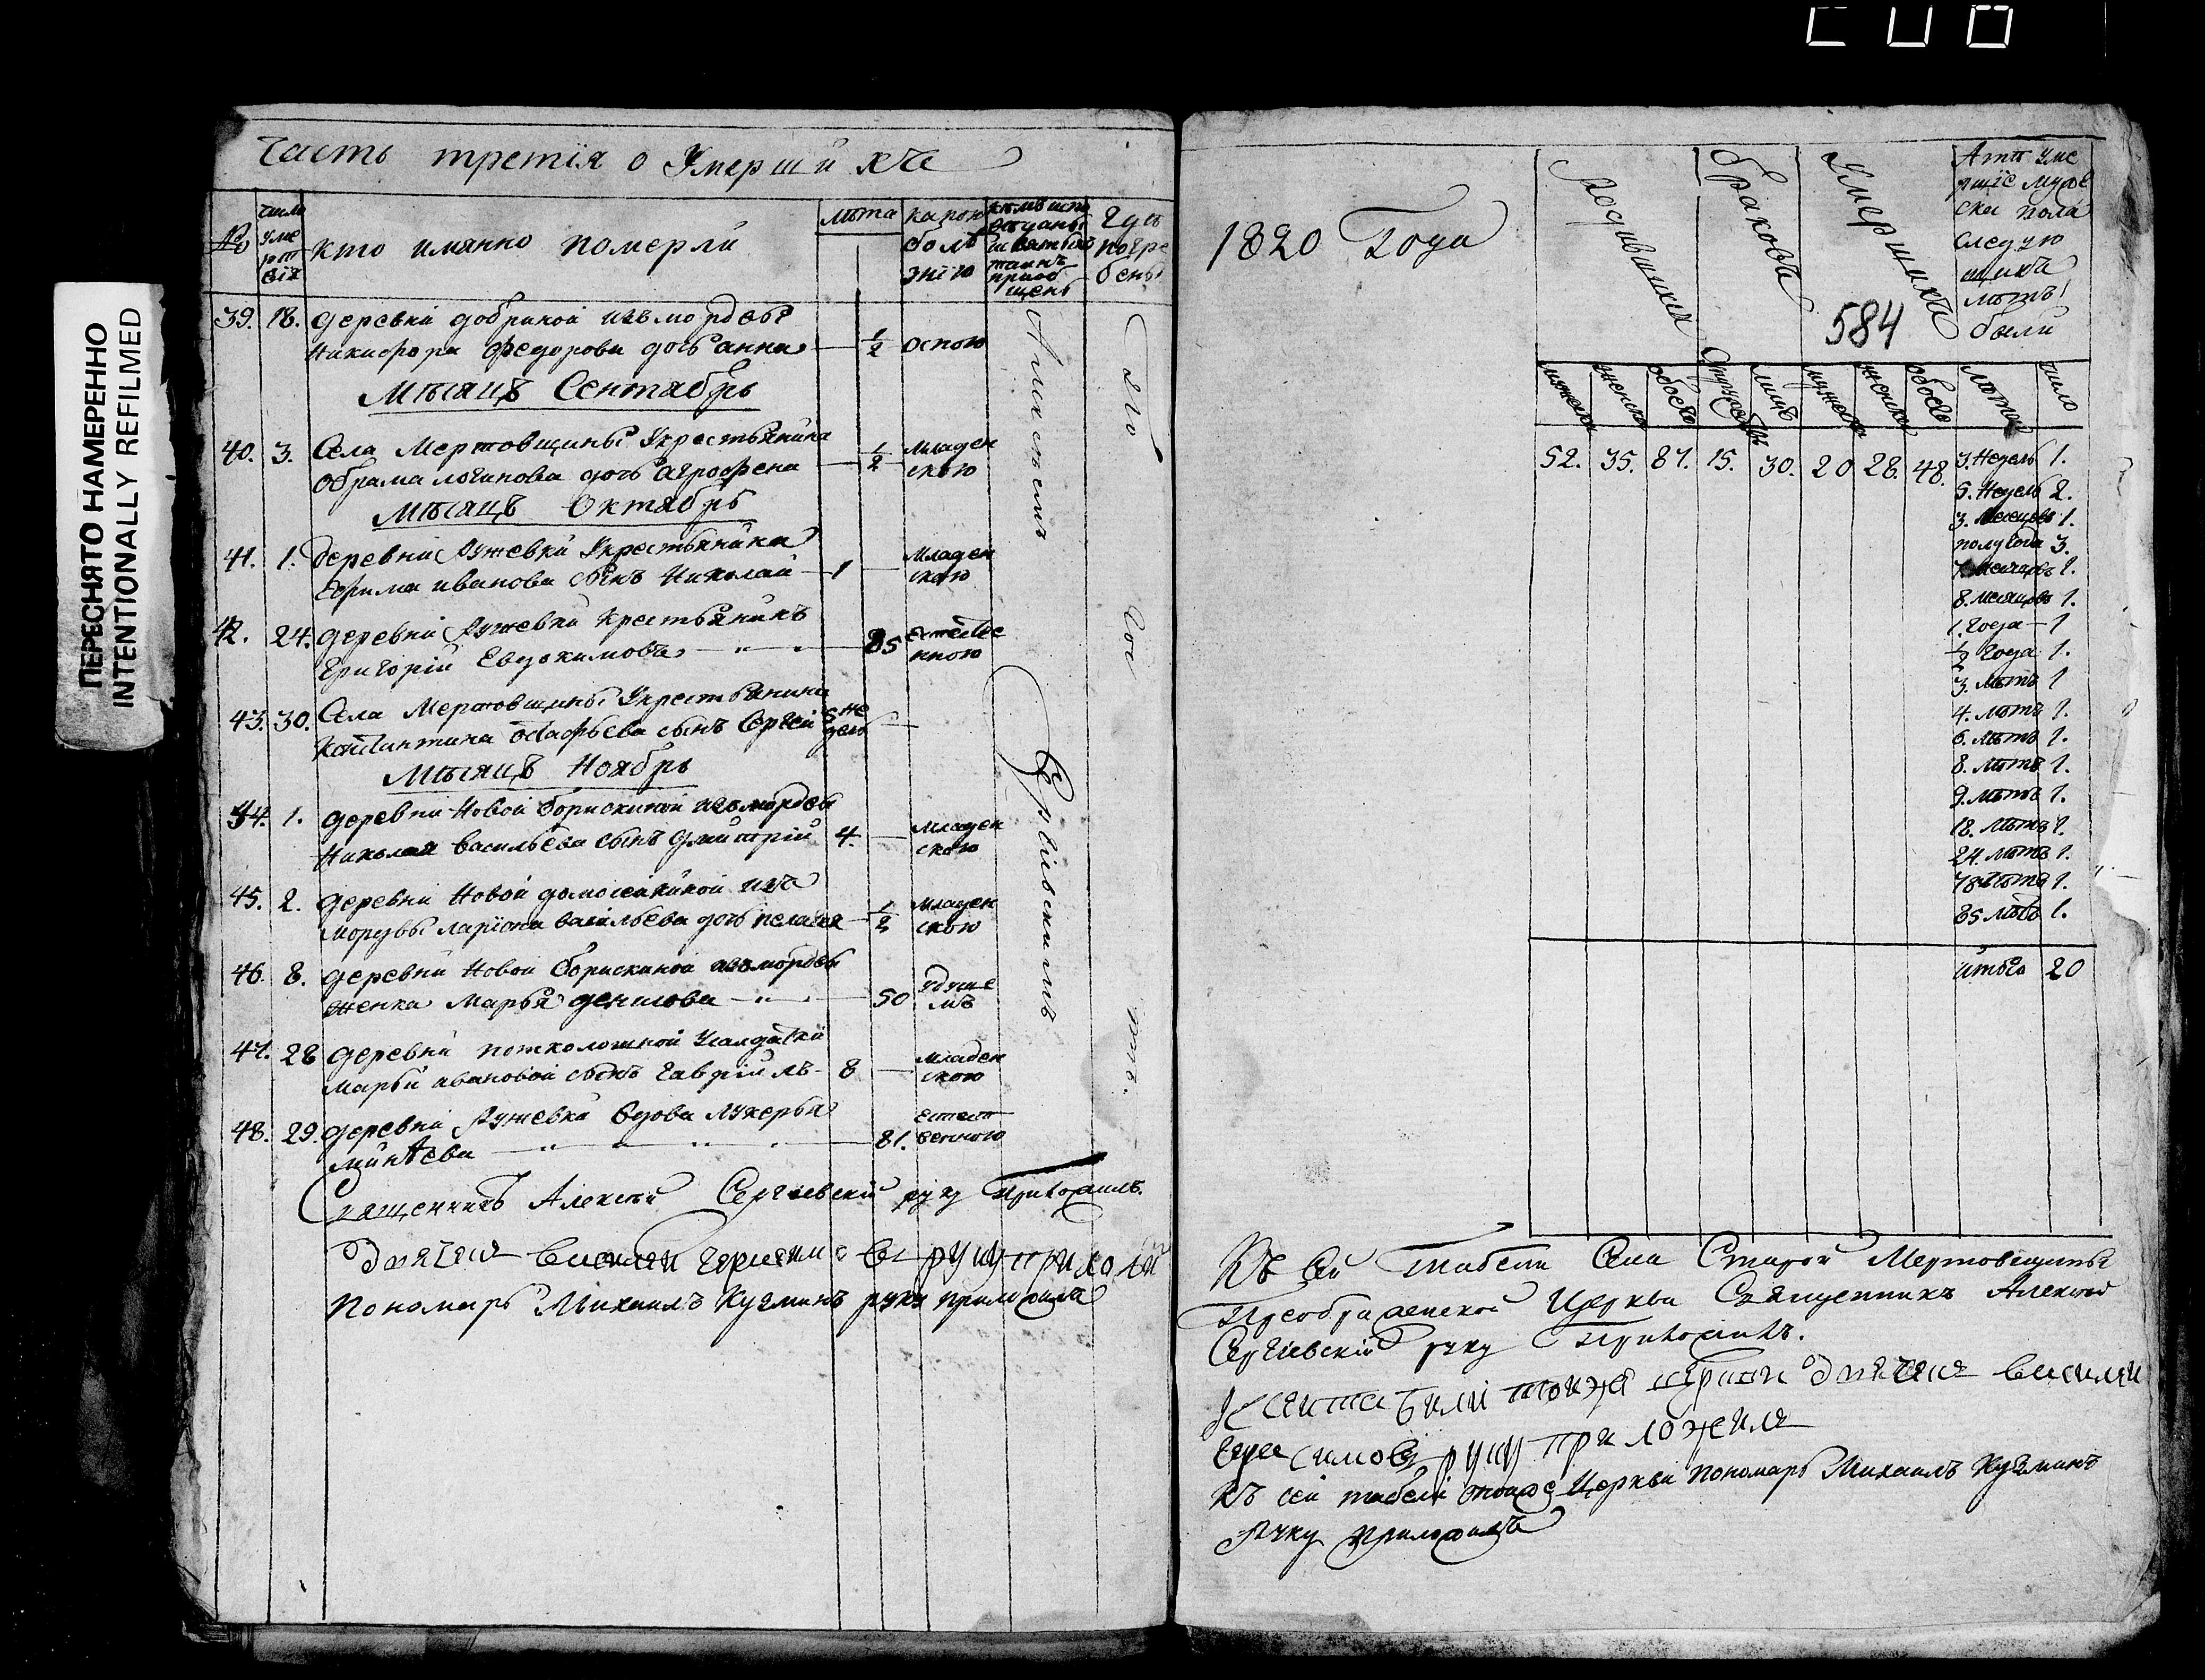 ПЕРЕСНЯТО НАМЕРЕННО
INTENTIONALLY REFILMED
Часть третїя о Умершихъ
№ число умертвїя
кто имянно померли
лѣта
какою болѣзнїю
кѣмъ исповѣдуаны и святыхъ таинъ приобщены
гдѣ погребены
39. 18. деревни добриной изъ мордвы
Никифора Федорова дочь анна 1/2 оспою
Мѣсяцъ Сентябрь
40. 3. Села Мертовщины Укрестьянина
Обрама логинова дочь агрофена 1/2 младенскою
Мѣсяцъ Октябрь
41. 1. деревни Ружевки Укрестьянина
Ефима иванова сынъ Николай 1 младенскою
42. 24. деревни Ружевки крестьянинъ
Григорiй Евдокимовъ 85 естественною
43. 30. Села Мертовщины Укрестьянина
Костинтина Остафьева сынъ Сергей 5 недель
Мѣсяцъ Ноябрь
44. 1. деревни Новой борискиной изъ мордвы
Николая васильева сынъ дмитрiй 4. младенскою
45. 2. деревни Новой домосеикиной изъ
мордвы ларiона васильева дочь пелагея 1/2 младенскою
46. 8. деревни Новой борискиной изъ мордвы
женка Марья денисова 50 удушемъ
47. 28 деревни потколошной Усалдатки
марьи ивановой сынъ гаврiилъ 8 младенскою
48. 29. деревни Ружевки вдова лукерья
минаева 81. естественною
Алексѣемъ Сергiевскимъ
Священникъ Алексѣй Сергiевскiй руку приложилъ.
дьячекъ василей герасимовъ руку приложи
пономарь Михаилъ Кузминъ руку приложилъ
1820 Года
Родившихся
браковъ
Умершихъ
584
А те умершїе мужеска пола следующихъ лѣтъ были
мужеска женска обоего супружествъ лицъ мужеска женска обоего лета число
52. 35. 87. 15. 30. 20 28. 48.
3. Недель 1.
5. Недель 2.
3. месецовъ 1.
полугода 3.
7. месецовъ 1.
8. месяцовъ 1.
1. года 1
1/2 года 1.
3. лѣтъ 1
4. лѣтъ 1.
6. лѣтъ 1.
8. лѣтъ 1.
9. лѣтъ 1.
18. лѣтъ 1.
24. лѣтъ 1.
78 лѣтъ 1.
85 лѣтъ 1.
итого 20
Къ сей табели Села Старой Мертовщины
Преображенской Церкви Священникъ Алексѣй
Сергiевскiй руку приложилъ.
К сей табили тойжа церкви дьячекъ василей
герасимовъ руку приложилъ
Къ сей табели тойже Церкви пономарь Михаилъ Кузминъ
руку приложилъ